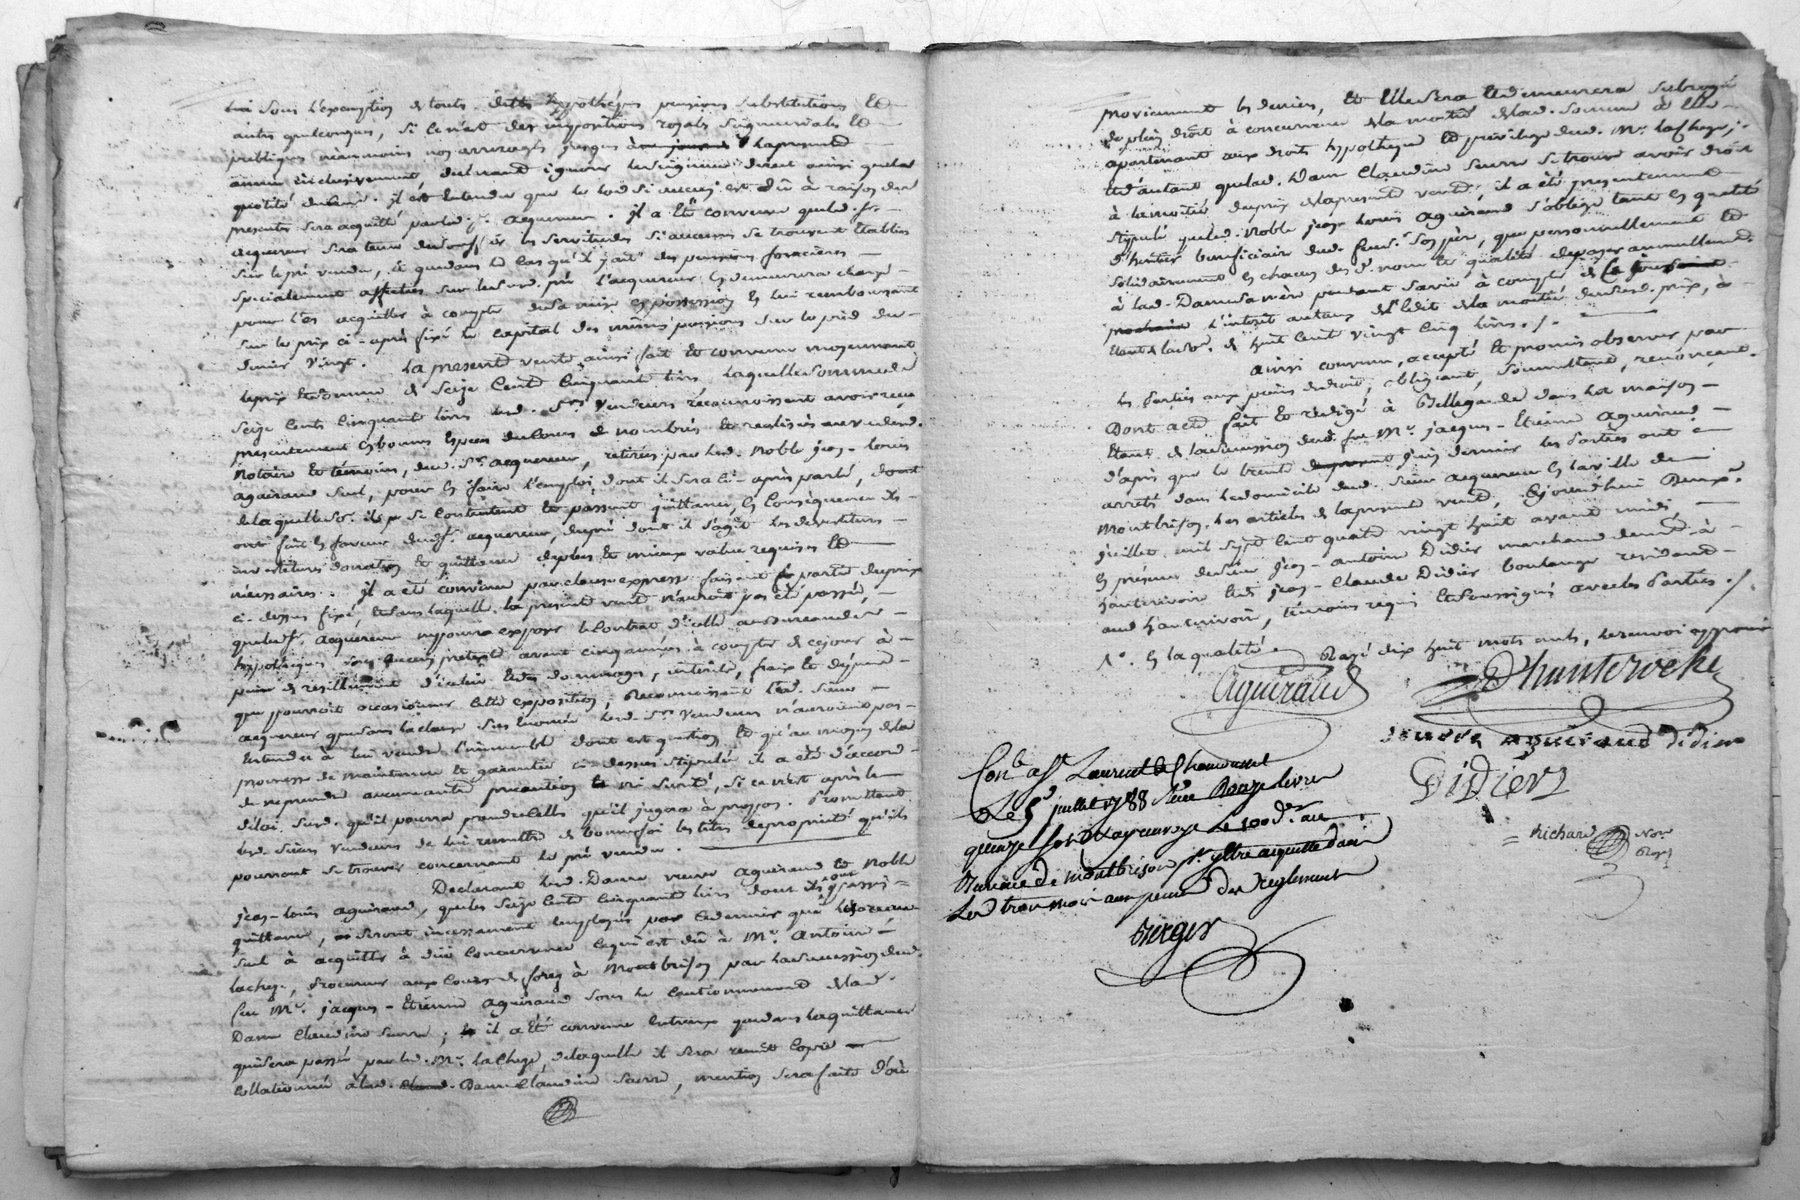 lui sous l'exemption de toutes dettes hypothèques pensions substitutions et
autres quelconques, si ce n'est des impositions royales seigneuriales et
publiques néanmoins non arreragés jusques à lapresente
année inclusivement
quotité du cens. il est entendu que le lod si aucun est dû à raison des
presentes sera acquitté par led. sr. acquereur. il a été convenu que led. sr.
acquereur sera tenu de souffrir les servitudes si aucunes se trouvent établies
sur le pré vendu, et que dans le cas qu'il y ait des pensions foncières
specialement affectées sur led. pré l'acquereur en demeurera chargé
pour les acquitter à compter de sa mise en possession en lui remboursant
sur le prix ci-après fixé le capital des mêmes pensions sur le pied du
denier vingt. La presente vente ainsi faite et convenue moyennant
le prix et somme de seize cent cinquante livres, laquelle somme de
seize cents cinquante livres lesd. srs. vendeurs reconnoissent avoir reçu
presentement en bonnes especes de cours nombrés et realisés au vu desd.
Notaire et témoins, dud. sr. acquereur, retirés par led. Noble jean-louis
aguiraud seul, pour en faire l'emploi, dont il sera ci-après parlé, dont
et de laquelle so. ils se contentent et passent quittance, en conséquence ils
ont fait en faveur dud. sr. acquereur, du pré dont il s'agit les devestitures
investitures donation et quittance de plus et mieux value requises et
nécessaires. il a été convenu par clause expresse faisant partie du prix
ci-dessus fixé, et sans laquelle la presente vente n'auroit pas été passée,
que led. sr. acquereur ne pourra exposer le contrat d'icelle au bureau des
hypothèques sous aucun pretexte avant cinq années à compter de ce jour à
peine de resiliement d'icelui et des dommages, interêts, fraix et dépens
que pourroit occasionner cette exposition; Reconnoissant led. sieur
acquereur que sans la clause sus énoncée lesd. srs. vendeurs n'auroient pas
entendu à lui vendre l'immeuble dont est question et qu'au moyen de la
promesse de maintenue et garantie ci-dessus stipulée il a été d'accord
de ne prendre aucun autre precaution ni sureté, si ce n'est après le
delai susd. qu'il pourra prendre celles qu'il jugera à propos. Promettent
lesd. sieurs vendeurs de lui remettre de bonne foi les titres de propriété qu'ils
pourront se trouver concernant le pré vendu.
Declarant lesd. Dame veuve aguiraud et Noble
jean-louis aguiraud, que les seize cent cinquante livres dont ils ont passé
quittance, seront incessamment employés par ce dernier
seul à acquitter à due concurrence ce qui est dû à Mr. Antoine
lachèze, Procureur aux Cours de forez à Montbrison par la succession dud.
feu Mr. jacques-Etienne aguiraud sous le cautionnement de lad.
Dame claudine serre; il a été convenu entreux que dans la quittance
qui sera passée par led. Mr. lachèze, de laquelle il sera remis copie
collationnée à lad. Dame claudine serre, mention sera faite d'où
proviennent les deniers, et Elle sera et demeurera subrogée
de plein droit à concurrence de la moitié de lad. somme à elle
apartenant aux droits hypotheque et privilege dud. Mr. lachèze,
et d'autant que lad. Dame Claudine serre se trouve avoir droit
à la moitié du prix de la presente vente, il a été presentement
stipulé que led. Noble jean-louis aguiraud s'oblige tant en qualité
d'heritier beneficiaire dud. feu sr. son père, que personnellement et
solidairement en chacun desd. noms et qualité de payer annuellement
à lad. Dame sa mère pendant sa vie à compter de la toussaint
prochaine l'interêt au taux de l'édit de la moitié du susd. prix,
étant de la so. de huit cent vingt cinq livres./.
ainsi convenu, accepté et promis observer par
les Parties aux peines de droit, obligeant, soumettant, renonçant.
Dont acte fait et rédigé à Bellegarde dans la maison
étant de la succession dud. feu Mr. jacques-Etienne aguiraud
d'après que le trente juin dernier les Parties ont
arrêté dans le domicile dud. sieur acquereur en la ville de
Montbrison les articles de la presente vente, Cejourd'hui deux
juillet mil sept cent quatre vingt huit avant midi,
en présence de sieur jean-antoine Didier marchand demt. à
hauterivoire et de jean-Claude Didier boulanger residant
aud. hauterivoire, témoins requis et soussignés avec les Parties./
1º. en la qualité Rayé dix huit mots nuls, le renvoi approuvé
aguiraud
Dhauteroche
aguiraud didier
Didier
= Richard Nore
Royal
Con.é à St. Laurent de Chamousset
Le 5 juillet 1788 Reçu Onze livres
quinze sols le 100e. au
Bureau de montbrison être acquitté dans
les trois mois aux peines des reglements
Berger